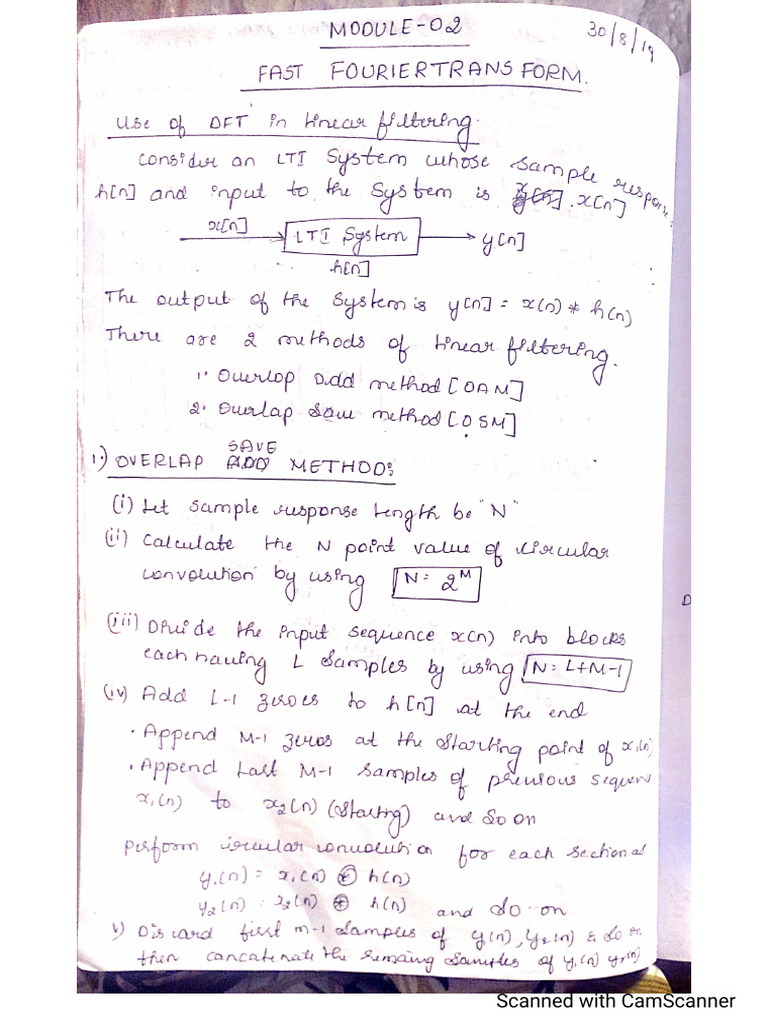 MODULE-02
30/8/19
FAST FOURIERTRANSFORM.
Use of DFT in linear filtering.
Consider an LTI System whose sample response
h[n] and input to the System is x[n]
x[n]
LTI System
y[n]
h[n]
The output of the System is y[n] = x(n) * h(n)
There are 2 methods of linear filtering.
1. Overlap Add method [OAM]
2. Overlap Save method [OSM]
SAVE
1.) OVERLAP ADD METHOD:
(i) Let sample response length be "N"
(ii) Calculate the N point value of circular
convolution by using N = 2^M
(iii) Divide the input sequence x(n) into blocks
each having L samples by using N = L+M-1
(iv) Add L-1 zeroes to h[n] at the end
• Append M-1 zeros at the starting point of x1(n)
• Append last M-1 samples of previous sequen
x1(n) to x2(n) (starting) and so on
perform circular convolution for each sectional
y1(n) = x1(n) ⊛ h(n)
y2(n) = x2(n) ⊛ h(n) and so on
v) Discard first m-1 samples of y1(n), y2(n) & so on
then concatenate the remaing samples of y1(n) y2(n)
D
Scanned with CamScanner